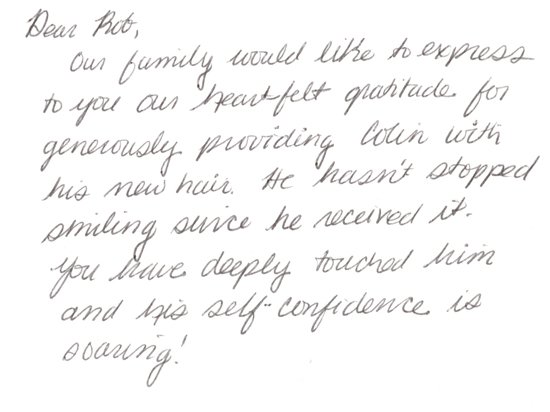 Dear Rob,
Our family would like to express
to you our heart-felt gratitude for
generously providing Colin with
his new hair. He hasn't stopped
smiling since he received it.
You have deeply touched him
and his self-confidence is
soaring!